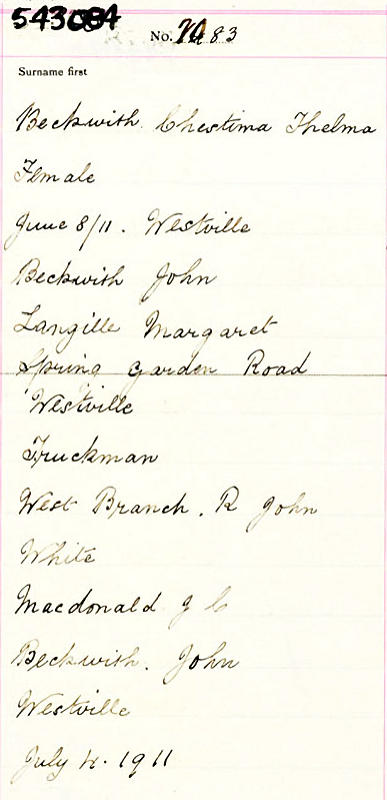 543084
No. 83
Surname first
Beckwith Chestima Thelma
Female
June 8/11. Westville
Beckwith John
Langille Margaret
Spring Garden Road
Westville
Truckman
West Branch. R John
White
Macdonald J C
Beckwith. John
Westville
July 4. 1911